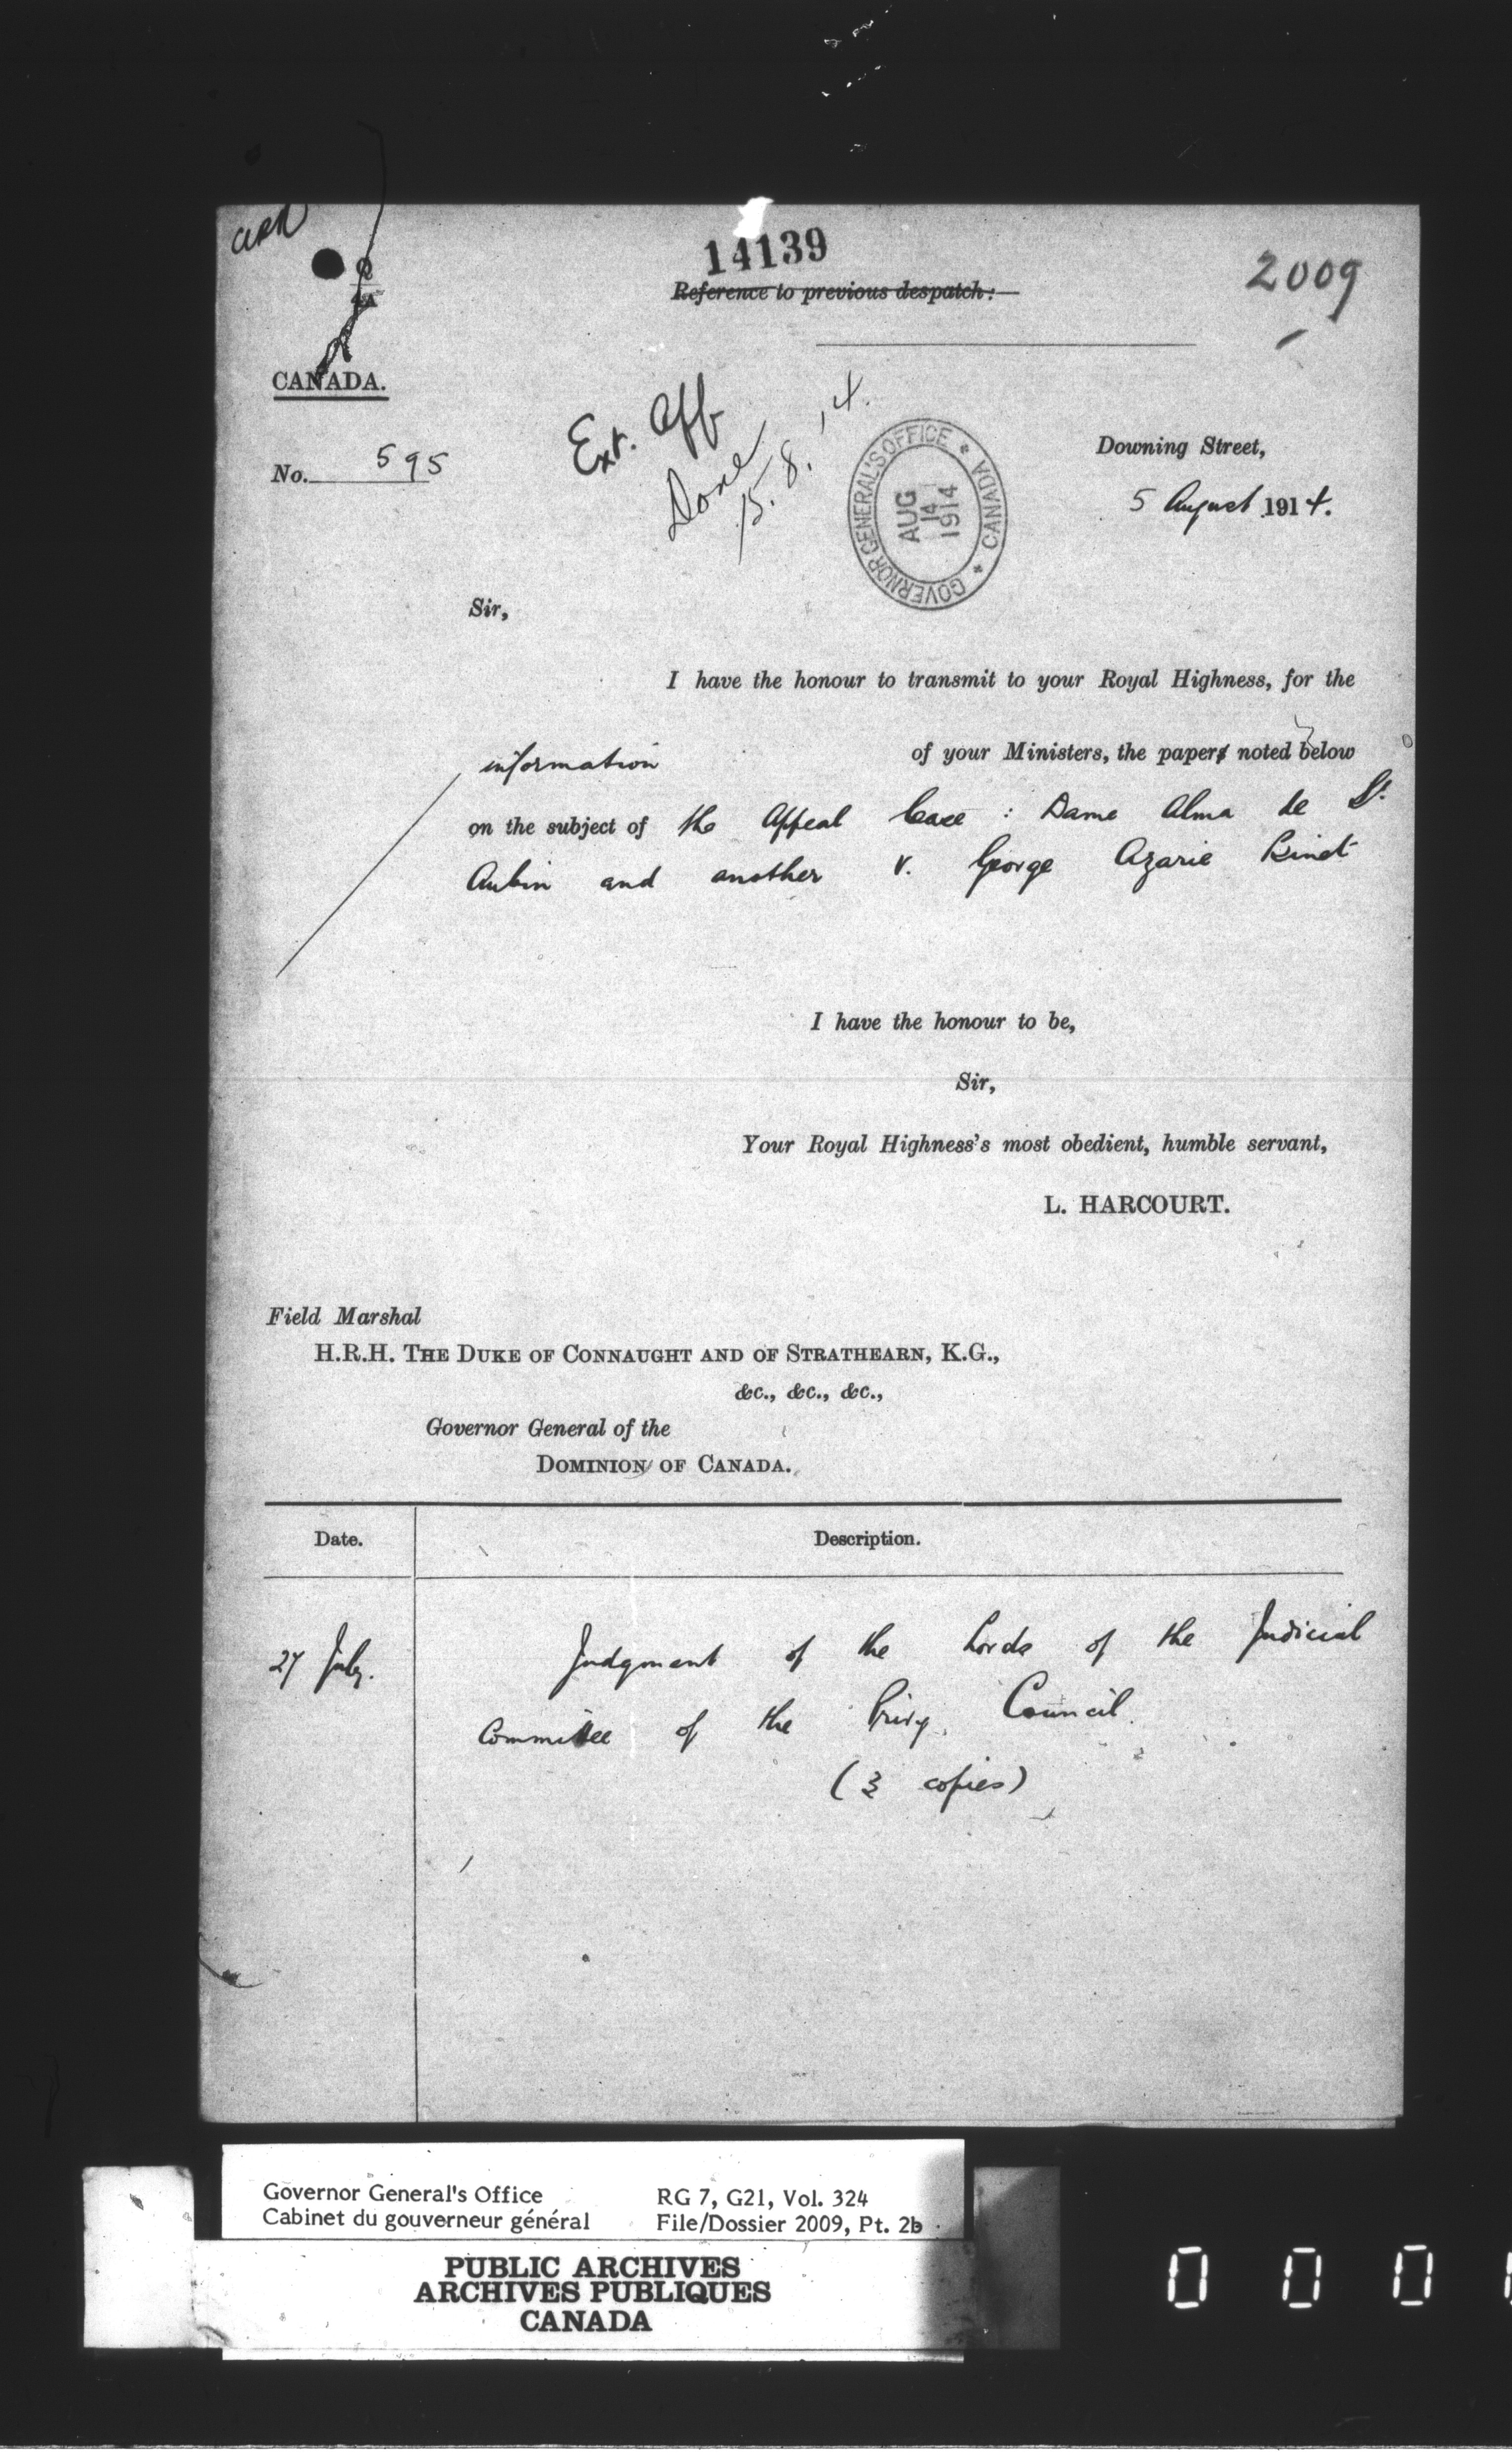 14139
2009
Reference to previous despatch:
CANADA.
No. 595
Ext. Aff
Done
15.8.14.
GOVERNOR GENERAL'S OFFICE * CANADA *
AUG
14
1914
Downing Street,
5 August 1914.
Sir,
I have the honour to transmit to your Royal Highness, for the
information of your Ministers, the paper noted below
on the subject of the Appeal Case : Dame Alma de St.
Aubin and another v. George Azarie Binet
I have the honour to be,
Sir,
Your Royal Highness's most obedient, humble servant,
L. HARCOURT.
Field Marshal
H.R.H. THE DUKE OF CONNAUGHT AND OF STRATHEARN, K.G.,
&c., &c., &c.,
Governor General of the
DOMINION OF CANADA.
Date. Description.
27 July. Judgment of the Lords of the Judicial
Committee of the Privy Council.
(3 copies)
Governor General's Office RG 7, G21, Vol. 324
Cabinet du gouverneur général File/Dossier 2009, Pt. 2b
PUBLIC ARCHIVES
ARCHIVES PUBLIQUES
CANADA
0 0 0